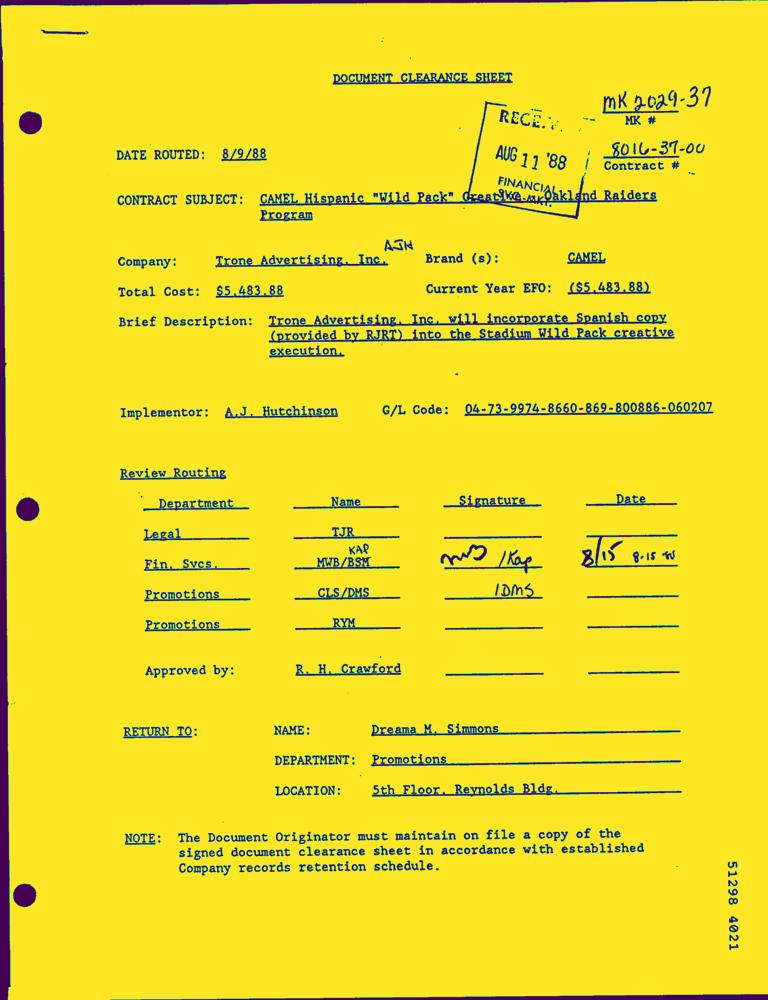 DOCUMENT CLEARANCE SHEET
MK 2029-37
MK #
RECE
AUG 11 '88
FINANCIAL
8016-37-00
Contract #
DATE ROUTED: 8/9/88
CONTRACT SUBJECT: CAMEL Hispanic "Wild Pack" Creative - Oakland Raiders
Program
AJH
Company: Trone Advertising, Inc. Brand (s): CAMEL
Total Cost: $5,483.88 Current Year EFO: ($5,483.88)
Brief Description: Trone Advertising, Inc. will incorporate Spanish copy
(provided by RJRT) into the Stadium Wild Pack creative
execution.
Implementor: A.J. Hutchinson G/L Code: 04-73-9974-8660-869-800886-060207
Review Routing
Department Name Signature Date
Legal TJR
KAP
Fin. Svcs. MWB/BSM /Kap 8/15 8-15
Promotions CLS/DMS /DMS
Promotions RYM
Approved by: R. H. Crawford
RETURN TO: NAME: Dreama M. Simmons
DEPARTMENT: Promotions
LOCATION: 5th Floor, Reynolds Bldg.
NOTE: The Document Originator must maintain on file a copy of the
signed document clearance sheet in accordance with established
Company records retention schedule.
51298 4021